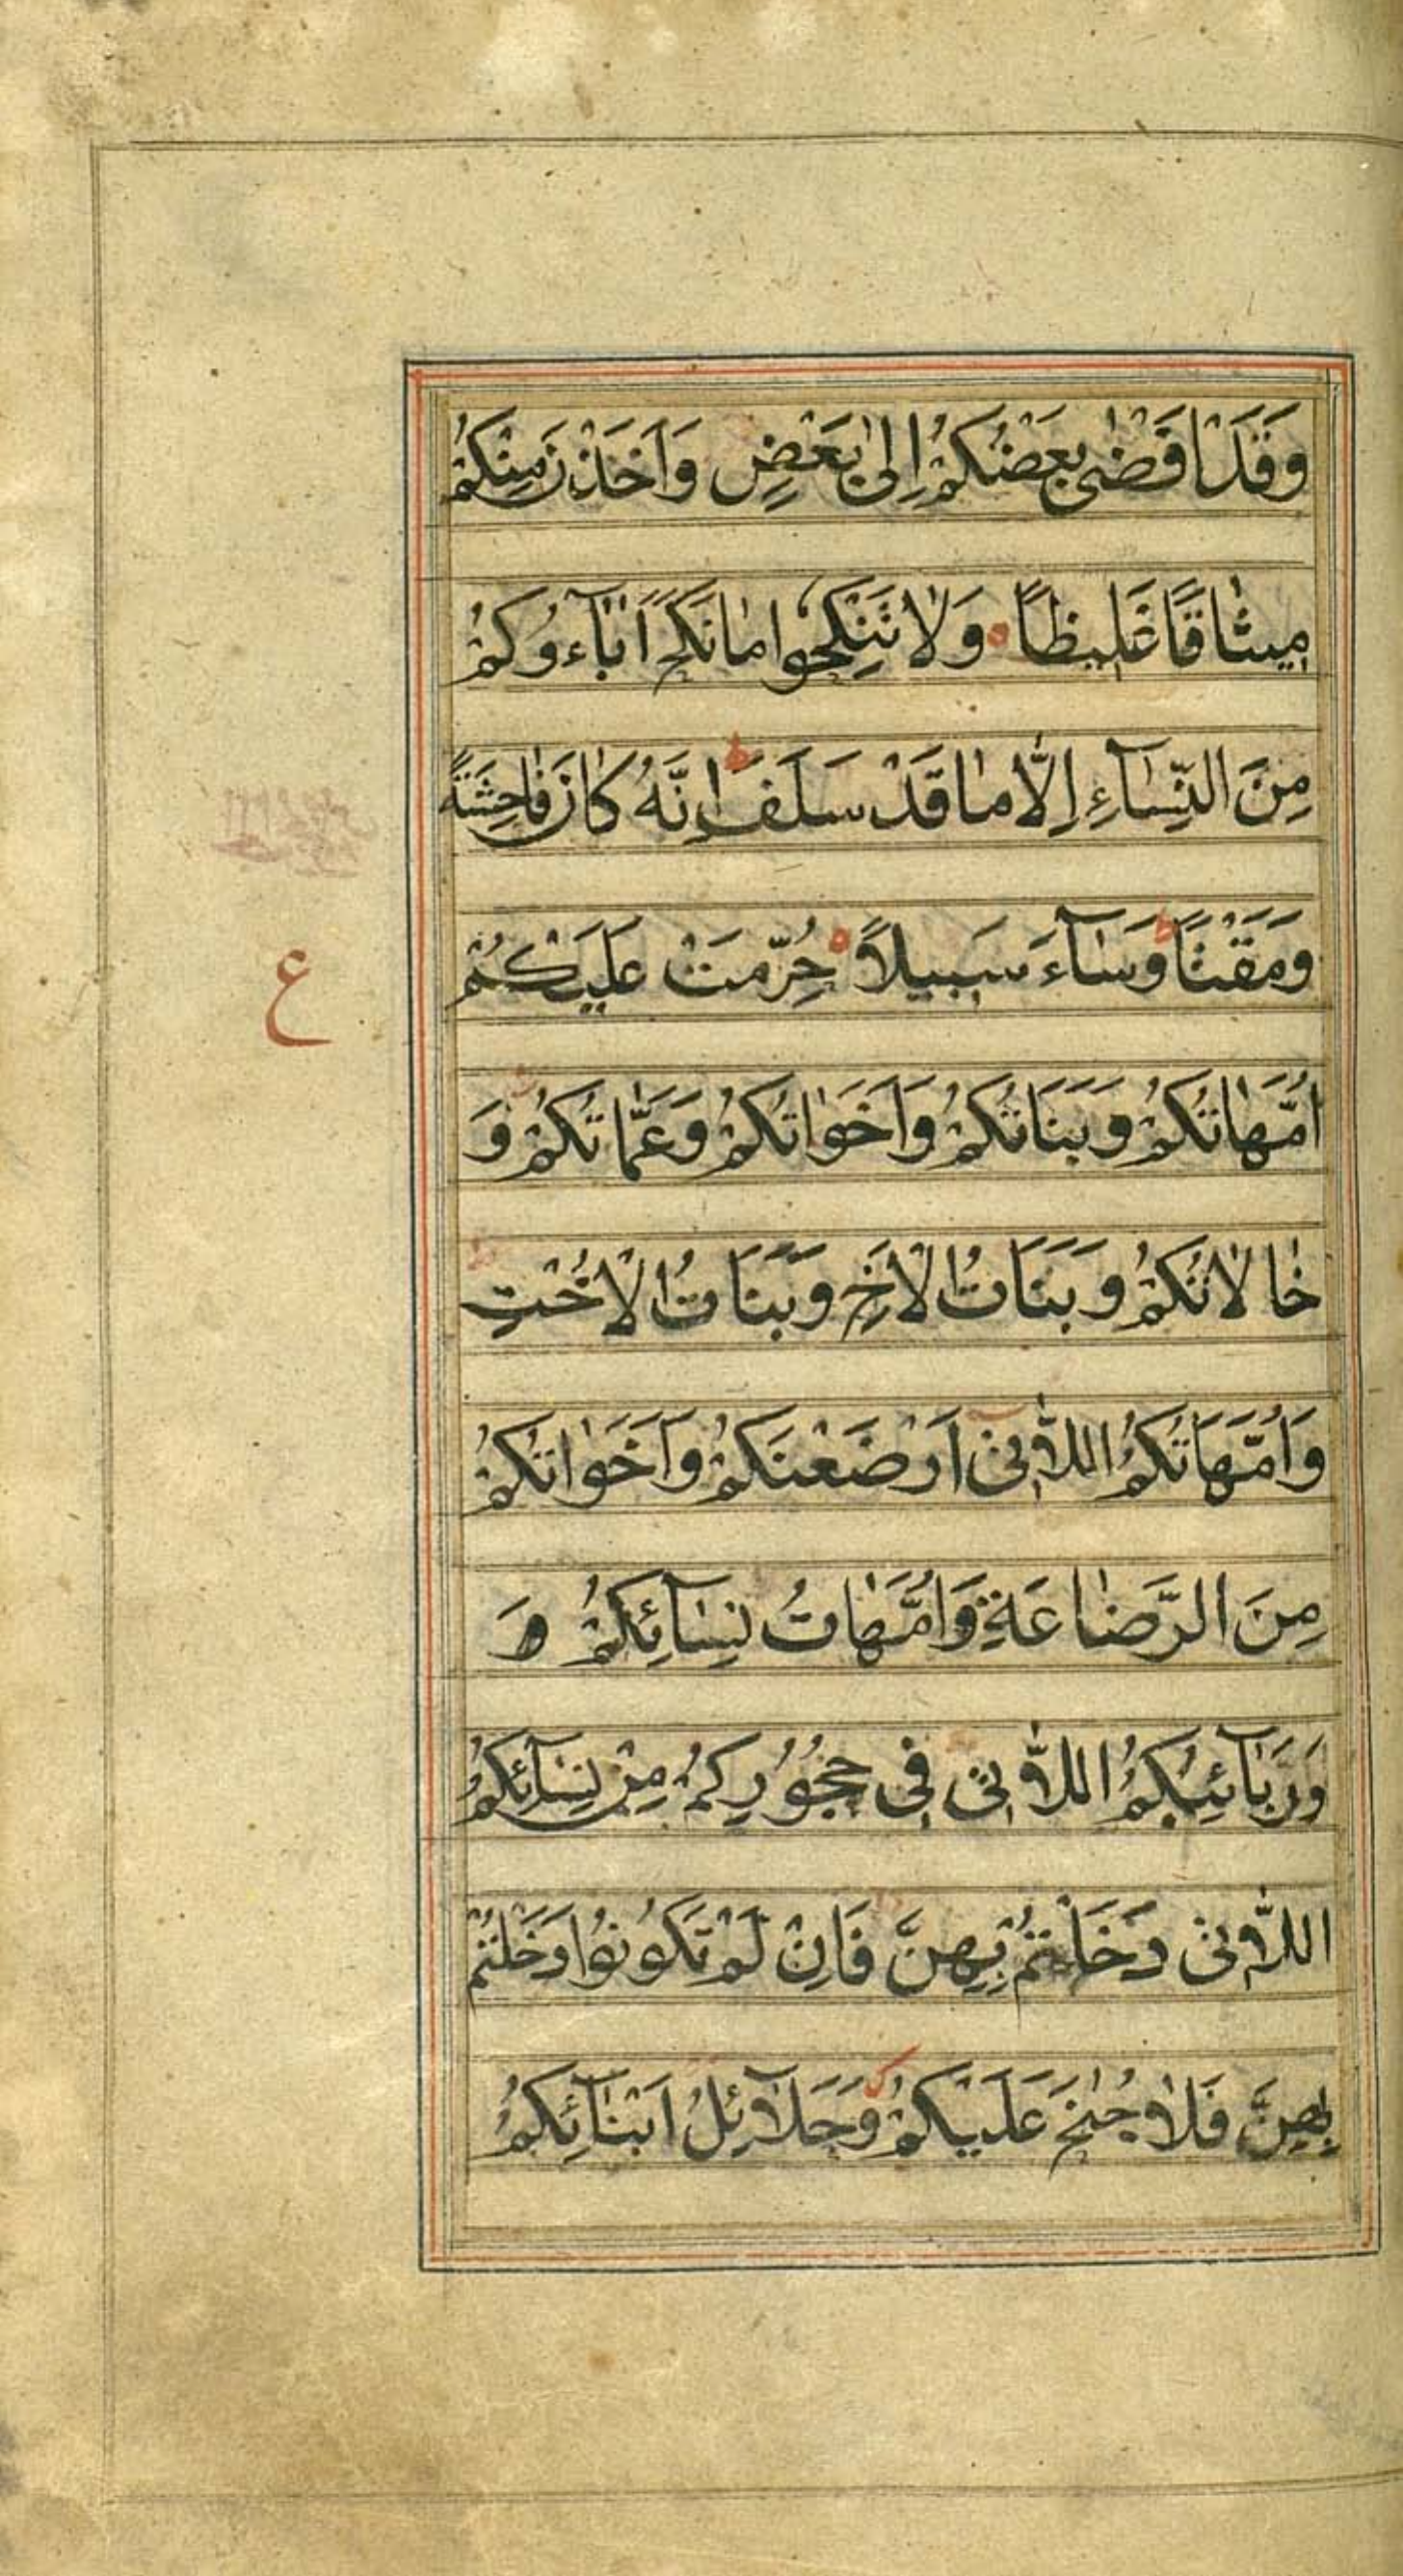 وَقَدْ اَفْضٰى بَعْضُكُمْ اِلٰى بَعْضٍ وَاَخَذْنَ مِنْكُمْ
مِيثٰاقًا غَلِيظًا ۝ وَلٰا تَنْكِحُوا مٰا نَكَحَ اٰبٰآءُوكُمْ
مِنَ النِّسٰآءِ اِلّٰا مٰا قَدْ سَلَفَ ط اِنَّهُ كٰانَ فٰاحِشَةً
وَمَقْتًا ط وَسٰآءَ سَبِيلًا ۝ حُرِّمَتْ عَلَيْكُمْ
ع
اُمَّهٰاتُكُمْ وَبَنَاتُكُمْ وَاَخَوٰاتُكُمْ وَعَمّٰاتُكُمْ وَ
خٰالٰاتُكُمْ وَبَنَاتُ الْاَخِ وَبَنَاتُ الْاُخْتِ
وَاُمَّهَاتُكُمُ اللّٰاتِىٓ اَرْضَعْنَكُمْ وَاَخَوٰاتُكُمْ
مِنَ الرَّضٰاعَةِ وَاُمَّهٰاتُ نِسٰآئِكُمْ وَ
وَرَبٰآئِبُكُمُ اللّٰاتِى فِى حُجُورِكُمْ مِنْ نِسٰآئِكُمُ
اللّٰاتِى دَخَلْتُمْ بِهِنَّ فَاِنْ لَمْ تَكُونُوا دَخَلْتُمْ
بِهِنَّ فَلٰا جُنٰحَ عَلَيْكُمْ وَحَلٰآئِلُ اَبْنٰآئِكُمُ